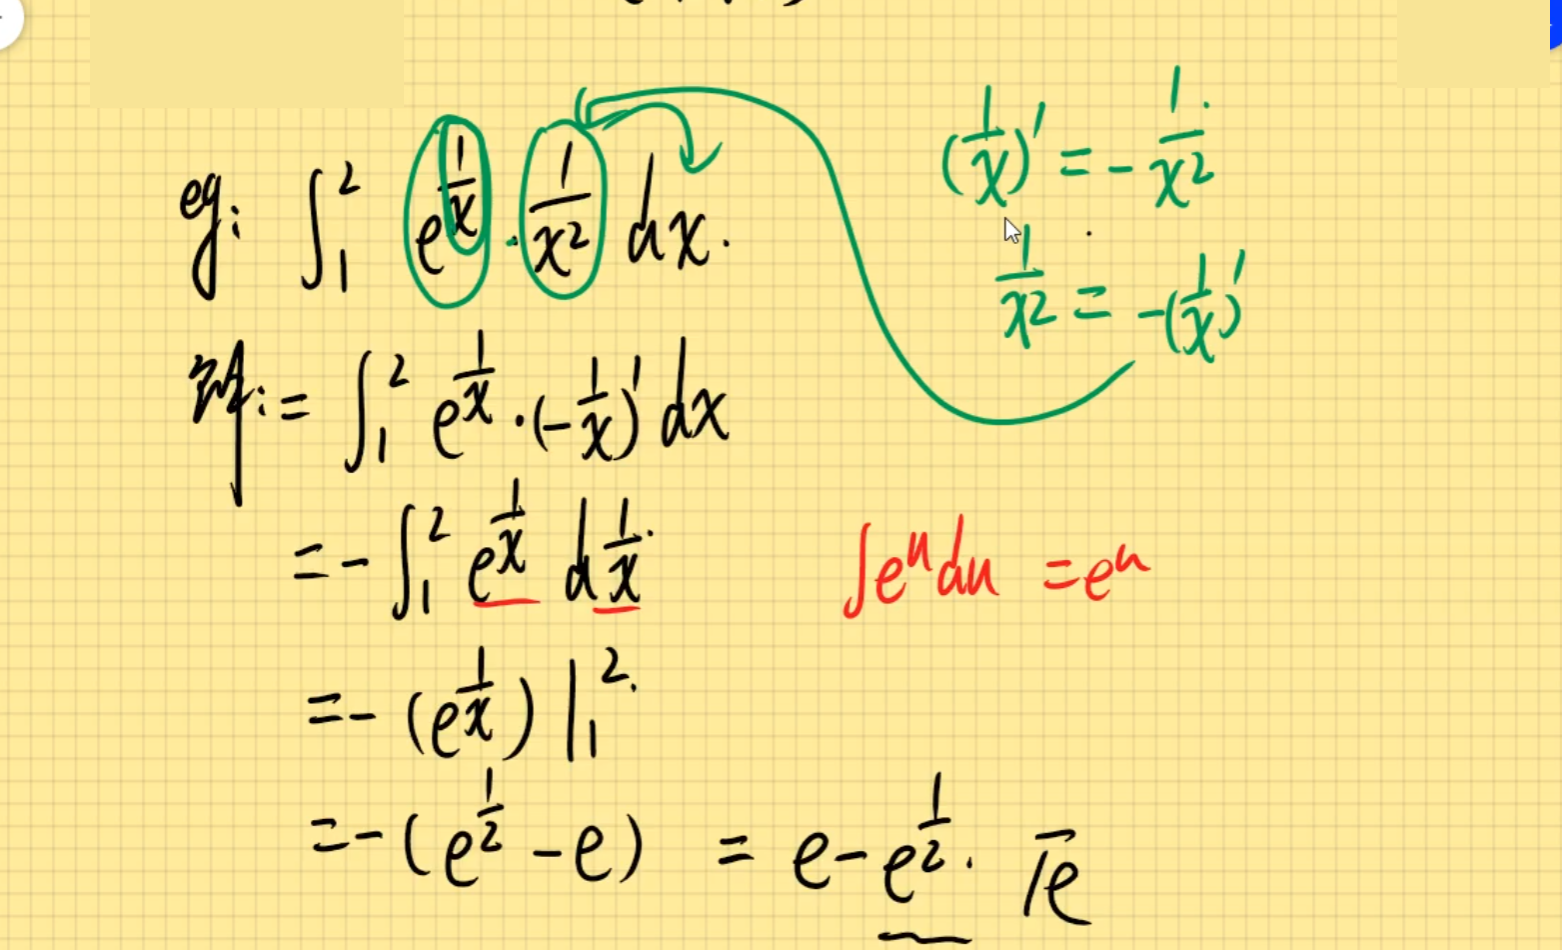 eg: ∫₁² e^(1/x) · 1/x² dx.
(1/x)' = - 1/x²
1/x² = -(1/x)'
解: = ∫₁² e^(1/x) · (-1/x)' dx
= - ∫₁² e^(1/x) d 1/x
∫e^u du = e^u
= - (e^(1/x)) |₁²
= - (e^(1/2) - e) = e - e^(1/2). √e